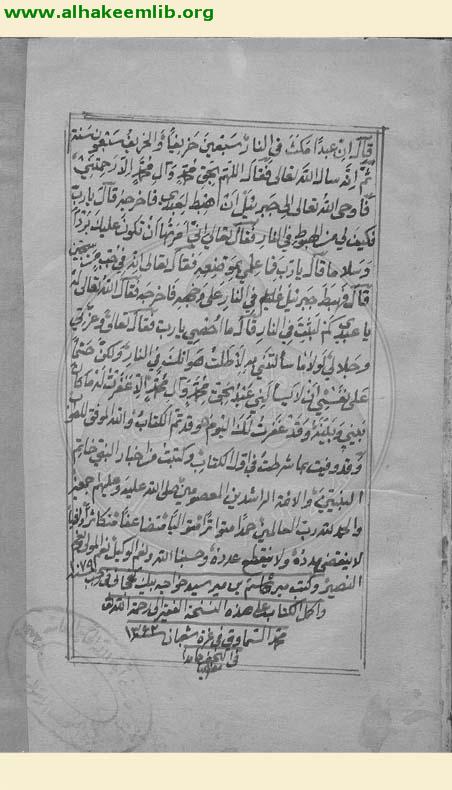 www.alhakeemlib.org
قال ان عبدا مكث في النار سبعين خريفا والخريف سبعون سنة
ثم انه سال الله تعالى فقال اللهم بحق محمد وآل محمد الا رحمتني
فاوحى الله تعالى الى جبرئيل ان اهبط لعبدي فاخرجه قال يا رب
فكيف لي من الهبوط في النار فقال تعالى اني امرتها ان تكون عليك بردا
وسلاما قال يا رب فما علمي بموضعه فقال تعالى انه في جب من سجين
قال فهبط جبرئيل عليه في النار على وجهه فاخرجه فقال الله تعالى له
يا عبدي كم لبثت في النار قال ما احصي يا رب فقال تعالى وعزتي
وجلالي لولا ما سألتني به لأطلت هوانك في النار ولكن حتما
على نفسي ان لا يسألني عبد بحق محمد وآل محمد الا غفرت له ما كان
بيني وبينه وقد غفرت لك اليوم قد تم الكتاب والله الموفق للصواب
وقد وفيت بما شرطت في اول الكتاب وكتبت من اخبار النبي خاتم
النبيين والائمة الراشدين المعصومين صلى الله عليه وعليهم اجمعين
والحمد لله رب العالمين حمدا متواترا متواليا متضاعفا متكاثرا
لا ينقضي مدده ولا ينقطع عدده وحسبنا الله ونعم الوكيل نعم المولى ونعم
النصير وكتب مير قاسم بن مير سيد خواجه بيك في رجب سنة ١٠٧٩
واكمل الكتاب على هذه النسخة الفقير الى رحمة الله
محمد السماوي في غرة شعبان ١٣٤٢
في النجف